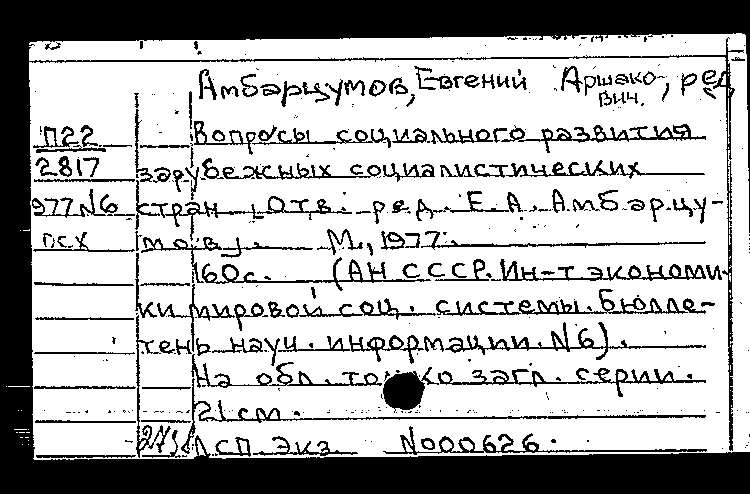 Амбарцумов, Евгений Аршако-
вич, ред
П22 Вопросы социального развития
2817 зарубежных социалистических
977 N6 стран [Отв. ред. Е. А. Амбарцу-
псх мов]. М., 1977.
160с. (АН СССР. Ин-т экономи-
ки мировой соц. системы. Бюлле-
тень науч. информации. N6).
На обл. только загл. серии.
21см.
1 сп. экз. N000626.